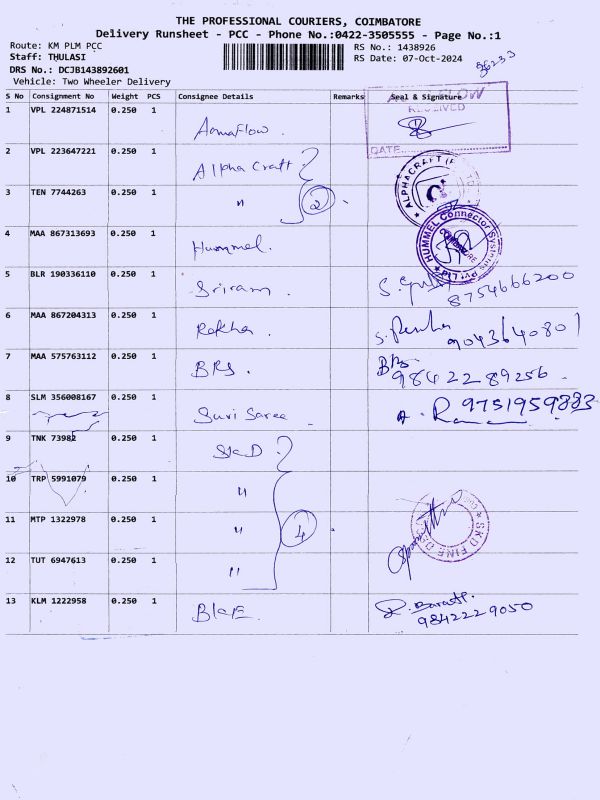 THE PROFESSIONAL COURIERS, COIMBATORE
Delivery Runsheet - PCC - Phone No.:0422-3505555 - Page No.:1
Route: KM PLM PCC RS No.: 1438926
Staff: THULASI RS Date: 07-Oct-2024
DRS No.: DCJB143892601
Vehicle: Two Wheeler Delivery
S No Consignment No Weight PCS Consignee Details Remarks Seal & Signature
1 VPL 224871514 0.250 1
RECEIVED
DATE
2 VPL 223647221 0.250 1 Alpha Craft
ALPHACRAFT
3 TEN 7744263 0.250 1 " 2
4 MAA 867313693 0.250 1 Hummel.
HUMMEL Connector Systems Pvt Ltd
5 BLR 190336110 0.250 1 Sriram.
8754666200
6 MAA 867204313 0.250 1 Rekha.
9043640801
7 MAA 575763112 0.250 1 BRS. BRS
9842289256
8 SLM 356008167 0.250 1 Suri Saree
9 TNK 73982 0.250 1 SKD
10 TRP 5991079 0.250 1 "
11 MTP 1322978 0.250 1 " 4
SKD FINE
12 TUT 6947613 0.250 1 "
13 KLM 1222958 0.250 1
9842229050